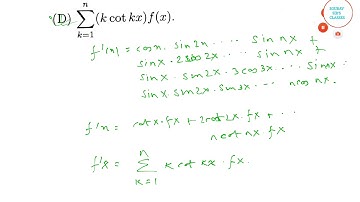 (D) \sum_{k=1}^{n} (k \cot kx) f(x).
f'(x) = cosx. sin2x .... sin nx +
sinx. 2cos2x .... sin nx +
sinx. sin2x. 3cos3x .... sin nx.
sinx. sin2x. sin3x ... n cos nx.
f'x = cotx. fx + 2cot2x. fx + ..
n cot nx. fx
f'x = \sum_{k=1}^{n} k cot kx. fx.